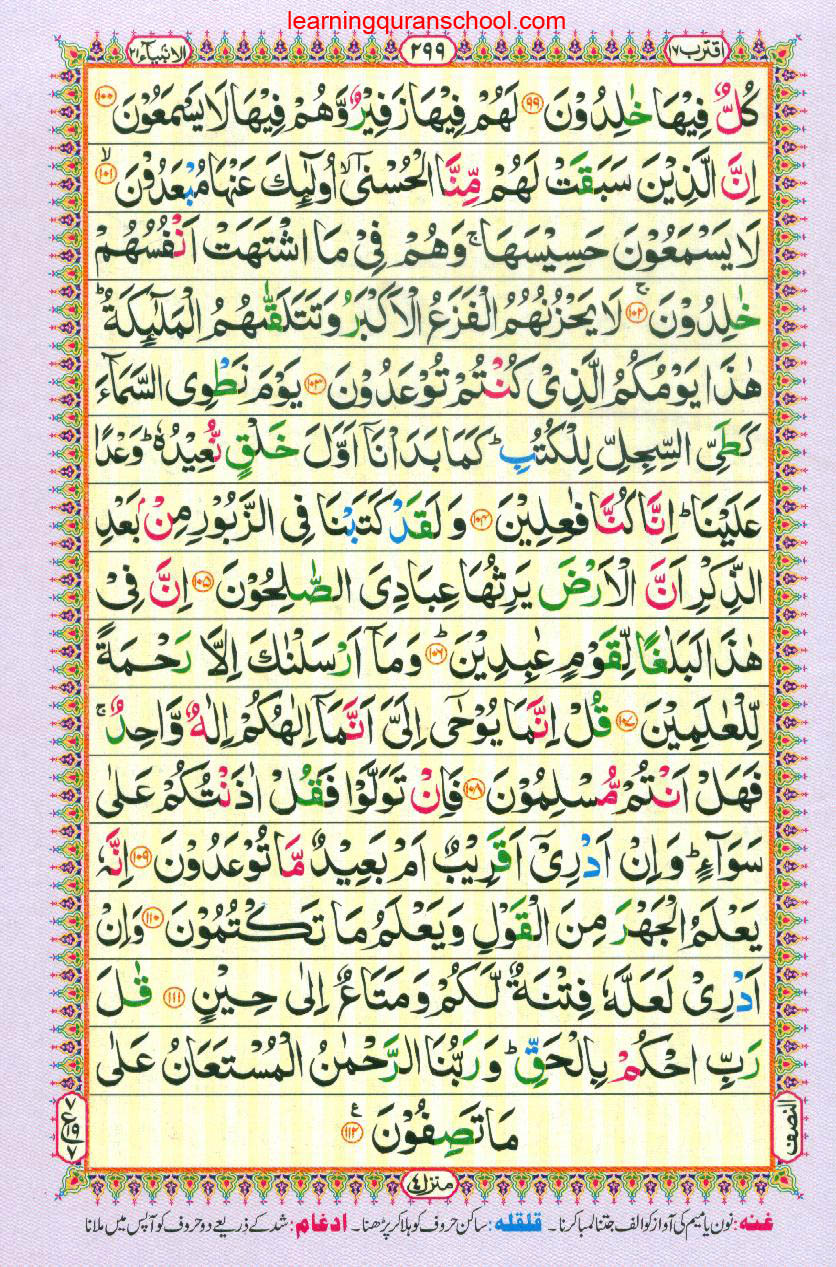 learningquranschool.com
الانبیآء ۲۱
۲۹۹
اقترب ۱۷
كُلٌّ فِیْهَا خٰلِدُوْنَ ۝۹۹ لَهُمْ فِیْهَا زَفِیْرٌ وَّهُمْ فِیْهَا لَا یَسْمَعُوْنَ ۝۱۰۰
اِنَّ الَّذِیْنَ سَبَقَتْ لَهُمْ مِّنَّا الْحُسْنٰۤى ۙ اُولٰٓىِٕكَ عَنْهَا مُبْعَدُوْنَ ۝۱۰۱ ۙ
لَا یَسْمَعُوْنَ حَسِیْسَهَا ۚ وَهُمْ فِیْ مَا اشْتَهَتْ اَنْفُسُهُمْ
خٰلِدُوْنَ ۝۱۰۲ ۚ لَا یَحْزُنُهُمُ الْفَزَعُ الْاَكْبَرُ وَتَتَلَقّٰىهُمُ الْمَلٰٓىِٕكَةُ ؕ
هٰذَا یَوْمُكُمُ الَّذِیْ كُنْتُمْ تُوْعَدُوْنَ ۝۱۰۳ یَوْمَ نَطْوِی السَّمَآءَ
كَطَیِّ السِّجِلِّ لِلْكُتُبِ ؕ كَمَا بَدَاْنَاۤ اَوَّلَ خَلْقٍ نُّعِیْدُهٗ ؕ وَعْدًا
عَلَیْنَا ؕ اِنَّا كُنَّا فٰعِلِیْنَ ۝۱۰۴ وَلَقَدْ كَتَبْنَا فِی الزَّبُوْرِ مِنْۢ بَعْدِ
الذِّكْرِ اَنَّ الْاَرْضَ یَرِثُهَا عِبَادِیَ الصّٰلِحُوْنَ ۝۱۰۵ اِنَّ فِیْ
هٰذَا لَبَلٰغًا لِّقَوْمٍ عٰبِدِیْنَ ۝۱۰۶ ؕ وَمَاۤ اَرْسَلْنٰكَ اِلَّا رَحْمَةً
لِّلْعٰلَمِیْنَ ۝۱۰۷ قُلْ اِنَّمَا یُوْحٰۤى اِلَیَّ اَنَّمَاۤ اِلٰهُكُمْ اِلٰهٌ وَّاحِدٌ ۚ
فَهَلْ اَنْتُمْ مُّسْلِمُوْنَ ۝۱۰۸ فَاِنْ تَوَلَّوْا فَقُلْ اٰذَنْتُكُمْ عَلٰى
سَوَآءٍ ؕ وَاِنْ اَدْرِیْۤ اَقَرِیْبٌ اَمْ بَعِیْدٌ مَّا تُوْعَدُوْنَ ۝۱۰۹ اِنَّهٗ
یَعْلَمُ الْجَهْرَ مِنَ الْقَوْلِ وَیَعْلَمُ مَا تَكْتُمُوْنَ ۝۱۱۰ وَاِنْ
اَدْرِیْ لَعَلَّهٗ فِتْنَةٌ لَّكُمْ وَمَتَاعٌ اِلٰى حِیْنٍ ۝۱۱۱ قٰلَ
رَبِّ احْكُمْ بِالْحَقِّ ؕ وَرَبُّنَا الرَّحْمٰنُ الْمُسْتَعَانُ عَلٰى
مَا تَصِفُوْنَ ۝۱۱۲ ع
النصف
۷ ع ۱۹ ۷
منزل ۴
غنه: نون یا میم کی آواز کو الف جتنا لمبا کرنا۔ قلقله: ساکن حروف کو ہلا کر پڑھنا۔ ادغام: شد کے ذریعے دو حروف کو آپس میں ملانا